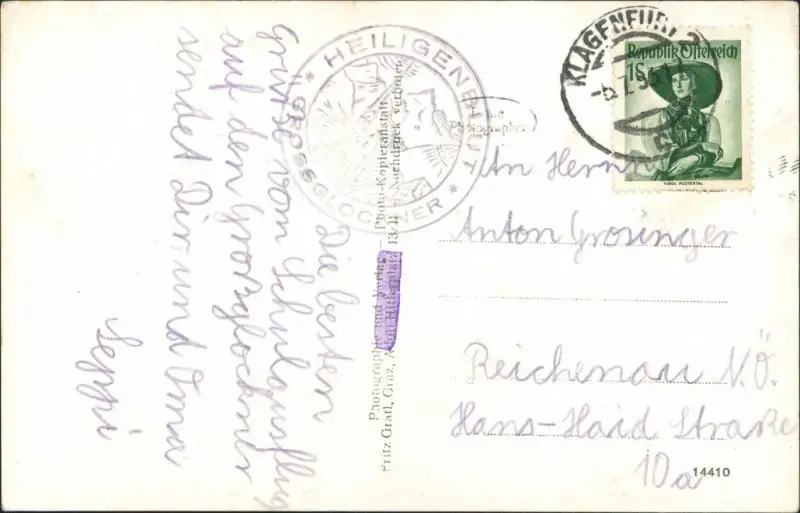 Die besten
Grüße vom Schulausflug
auf den Großglockner
sendet Dir und Oma
Seppi
* HEILIGENBLUT *
GROSSGLOCKNER
Photographie und Verlag – Photo-Kopieranstalt
Fritz Gratl, Graz, Adolf Hitlerplatz 13/II – Nachdruck verboten
KLAGENFURT 2
Republik Österreich
1S
TIROL PUSTERTAL
An Herrn
Anton Grosinger
Reichenau N.Ö.
Hans-Haid Straße
10a
14410